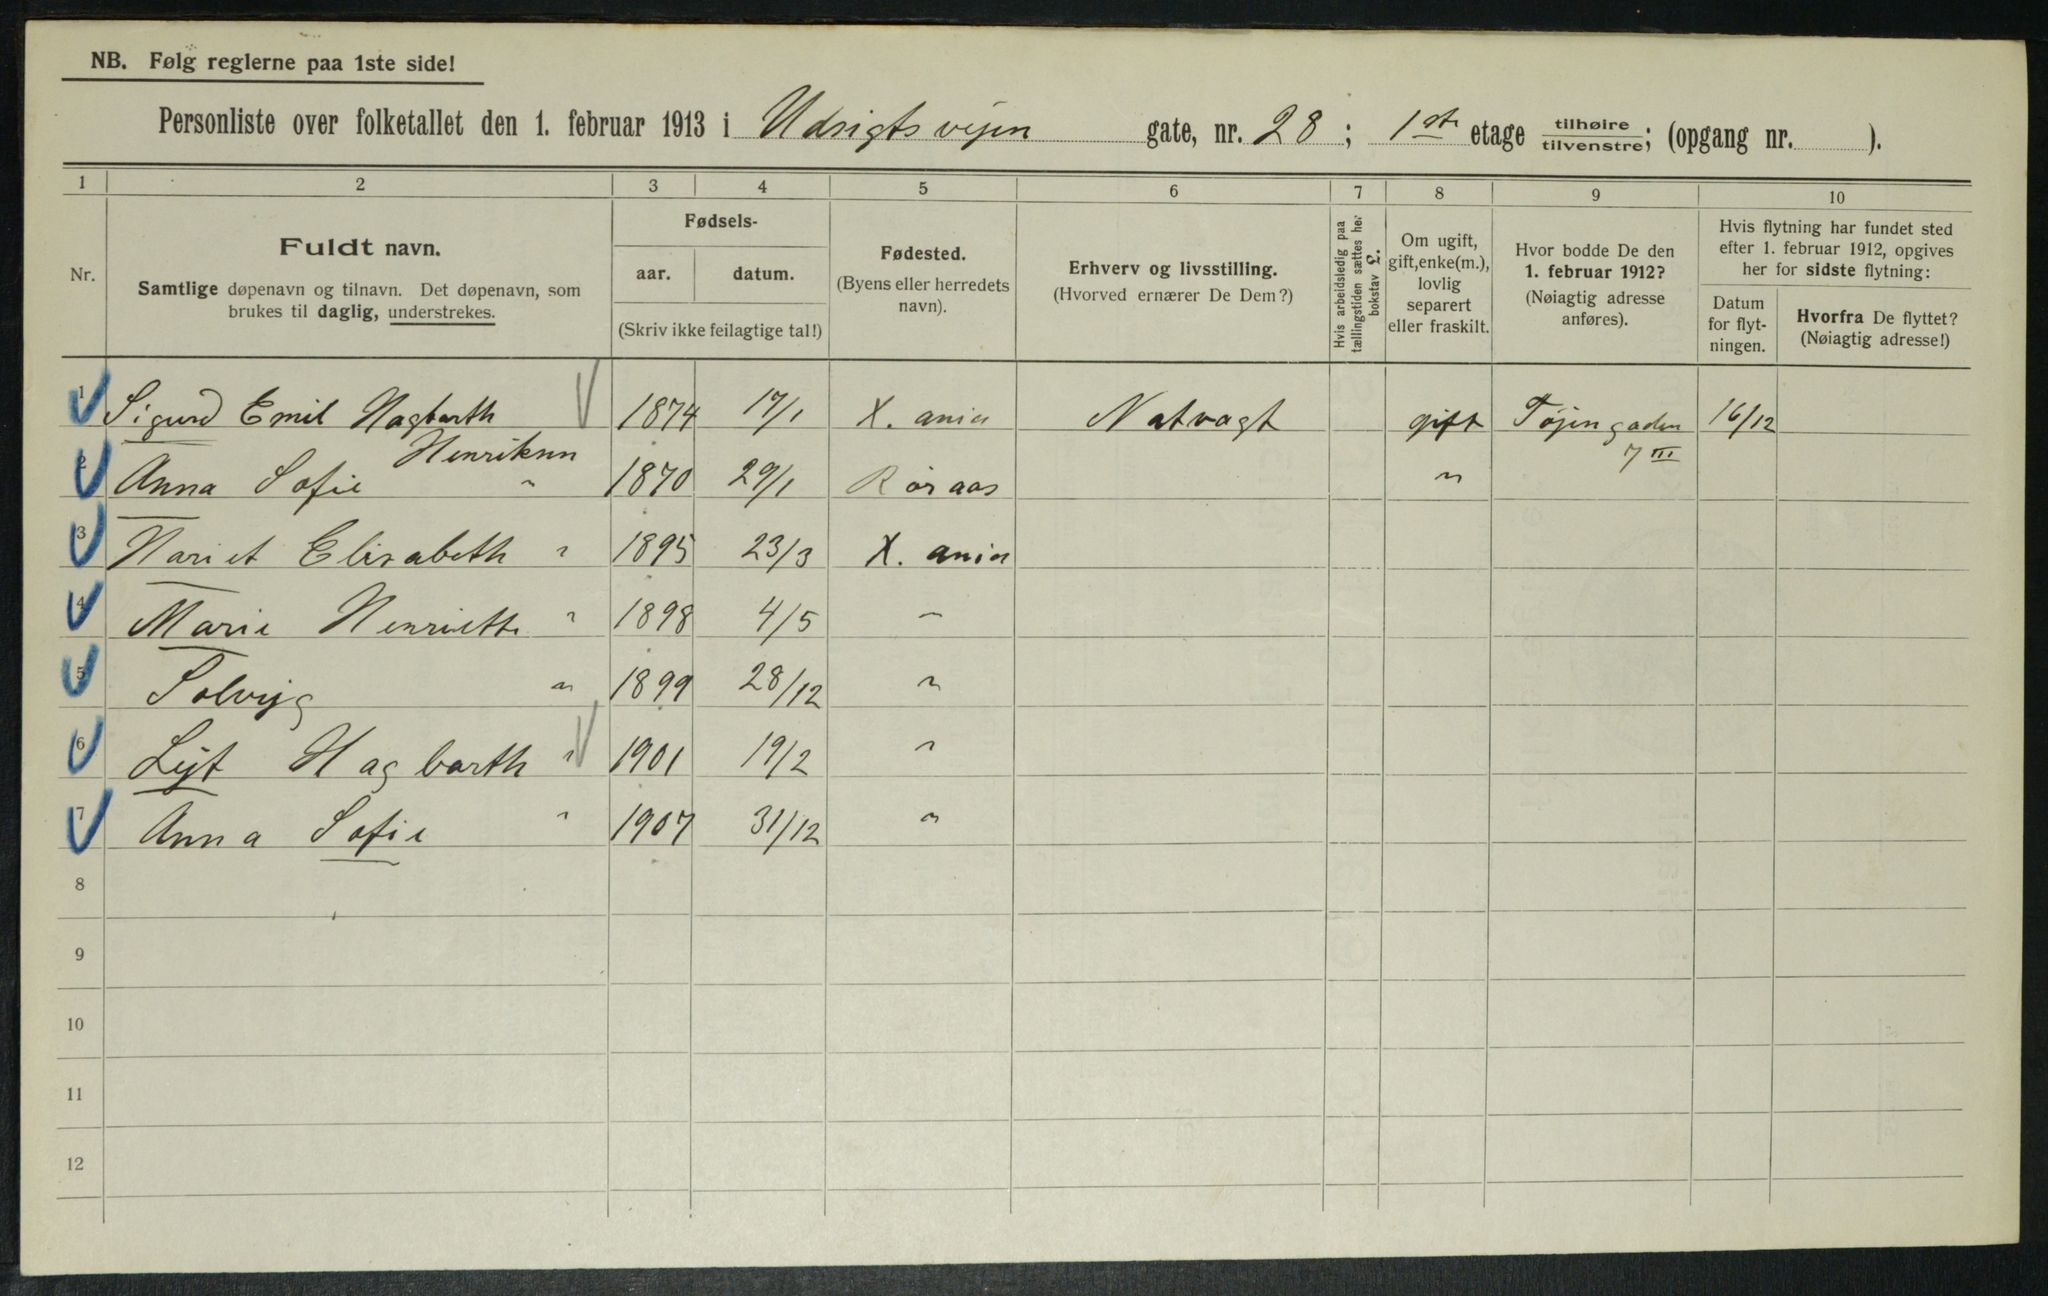 NB. Følg reglerne paa 1ste side!
Personliste over folketallet den 1. februar 1913 i Udsigtsvejen gate, nr. 28; 1ste etage tilhøire/tilvenstre; (opgang nr. ).
1 2 3 4 5 6 7 8 9 10
Nr.
Fuldt navn.
Samtlige døpenavn og tilnavn. Det døpenavn, som
brukes til daglig, understrekes.
Fødsels-
aar. datum.
(Skriv ikke feilagtige tal!)
Fødested.
(Byens eller herredets
navn).
Erhverv og livsstilling.
(Hvorved ernærer De Dem?)
Hvis arbeidsledig paa
tællingstiden sættes her
bokstav L.
Om ugift,
gift, enke(m.),
lovlig
separert
eller fraskilt.
Hvor bodde De den
1. februar 1912?
(Nøiagtig adresse
anføres).
Hvis flytning har fundet sted
efter 1. februar 1912, opgives
her for sidste flytning:
Datum
for flyt-
ningen.
Hvorfra De flyttet?
(Nøiagtig adresse!)
1 Sigurd Emil Hagbarth 1874 17/1 X.ania Natvagt gift Tøjengaden 16/12
Henriksen 7 III
2 Anna Sofie " 1870 29/1 Røraas "
3 Hariet Elisabeth " 1895 23/3 X.ania
4 Marie Henriette " 1898 4/5 "
5 Solvejg " 1899 28/12 "
6 Lejf Hagbarth " 1901 19/2 "
7 Anna Sofie " 1907 31/12 "
8
9
10
11
12